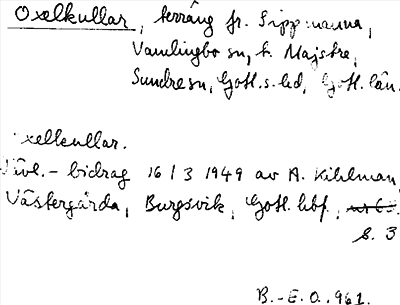 Oxelkullar, terräng fr. Sippmanna,
Vamlingbo sn, t. Majstre,
Sundre sn, Gotl. s. hd, Gotl. län.
xelkullar.
bidrag 16/3 1949 av A. Kihlman,
Västergårda, Burgsvik, Gotl. hbf,
s. 3
B.-E. O. 961.